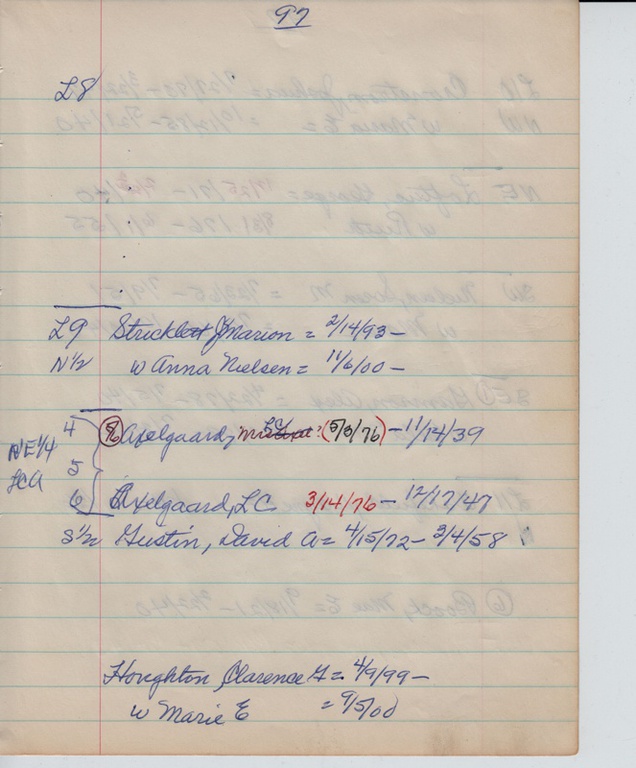 97
L8
L9 Stricklett J Marion = 2/14/93 -
N 1/2 w Anna Nielsen = 11/6/00 -
4 Axelgaard, (5/3/76) - 11/14/39
NE 1/4
5
LCA
6 Axelgaard, LC 3/14/76 - 12/17/47
S 1/2 Gustin, David A = 4/15/72 - 3/4/58
Houghton Clarence G = 4/9/99 -
w Marie E = 9/5/00